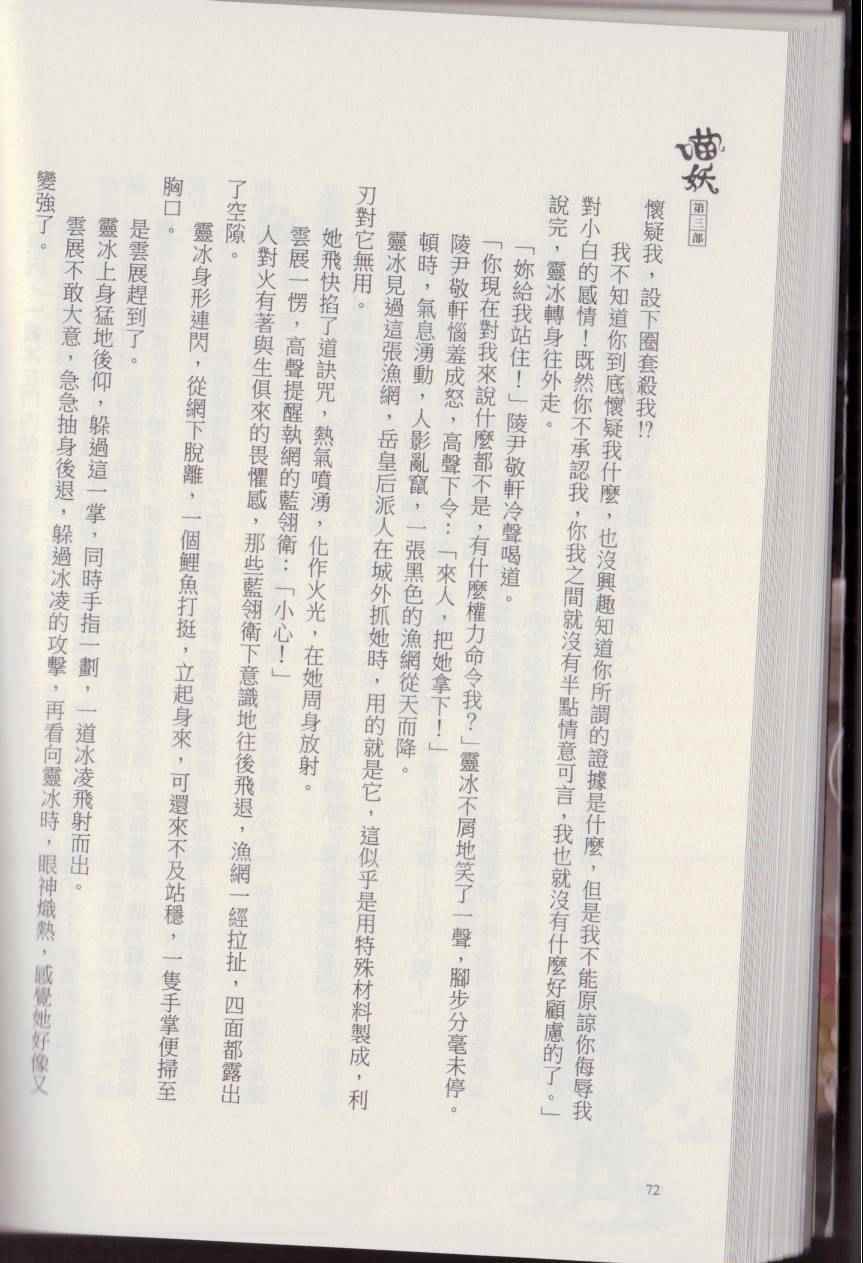 喵妖
第三部
懷疑我，設下圈套殺我!?
我不知道你到底懷疑我什麼，也沒興趣知道你所謂的證據是什麼，但是我不能原諒你侮辱我
對小白的感情！既然你不承認我，你我之間就沒有半點情意可言，我也就沒有什麼好顧慮的了。」
說完，靈冰轉身往外走。
「妳給我站住！」陵尹敬軒冷聲喝道。
「你現在對我來說什麼都不是，有什麼權力命令我？」靈冰不屑地笑了一聲，腳步分毫未停。
陵尹敬軒惱羞成怒，高聲下令：「來人，把她拿下！」
頓時，氣息湧動，人影亂竄，一張黑色的漁網從天而降。
靈冰見過這張漁網，岳皇后派人在城外抓她時，用的就是它，這似乎是用特殊材料製成，利
刃對它無用。
她飛快掐了道訣咒，熱氣噴湧，化作火光，在她周身放射。
雲展一愣，高聲提醒執網的藍翎衛：「小心！」
人對火有著與生俱來的畏懼感，那些藍翎衛下意識地往後飛退，漁網一經拉扯，四面都露出
了空隙。
靈冰身形連閃，從網下脫離，一個鯉魚打挺，立起身來，可還來不及站穩，一隻手掌便掃至
胸口。
是雲展趕到了。
靈冰上身猛地後仰，躲過這一掌，同時手指一劃，一道冰凌飛射而出。
雲展不敢大意，急急抽身後退，躲過冰凌的攻擊，再看向靈冰時，眼神熾熱，感覺她好像又
變強了。
72